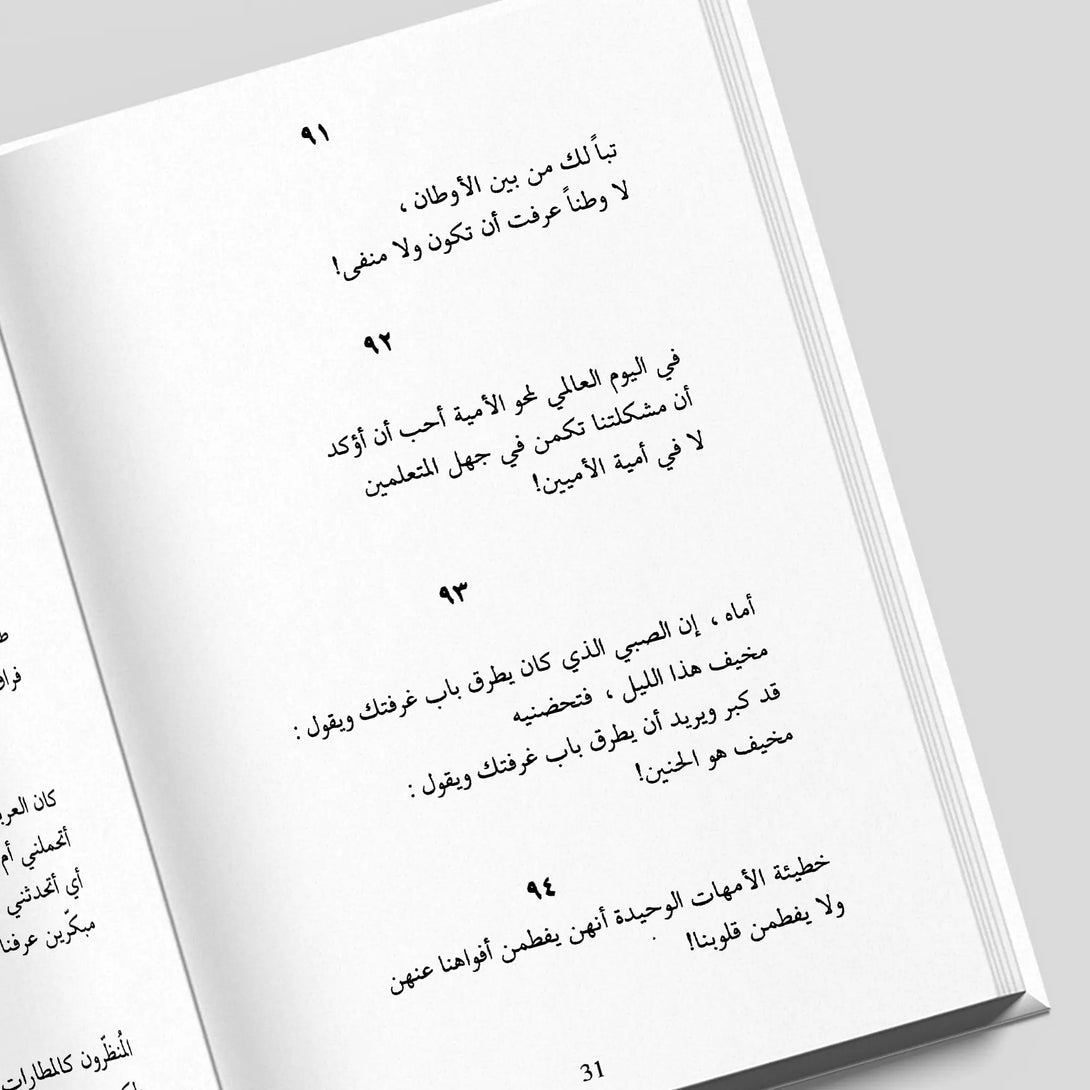 ٩١
تباً لك من بين الأوطان ،
لا وطناً عرفت أن تكون ولا منفى!
٩٢
في اليوم العالمي لمحو الأمية أحب أن أؤكد
أن مشكلتنا تكمن في جهل المتعلمين
لا في أمية الأميين!
٩٣
أماه ، إن الصبي الذي كان يطرق باب غرفتك ويقول :
مخيف هذا الليل ، فتحضنيه
قد كبر ويريد أن يطرق باب غرفتك ويقول :
مخيف هو الحنين!
٩٤
خطيئة الأمهات الوحيدة أنهن يفطمن أفواهنا عنهن
ولا يفطمن قلوبنا!
31
كان
أتحملني
أي أتحدثني
مبكّرين عرفنا
المُنظّرون كالمطارات